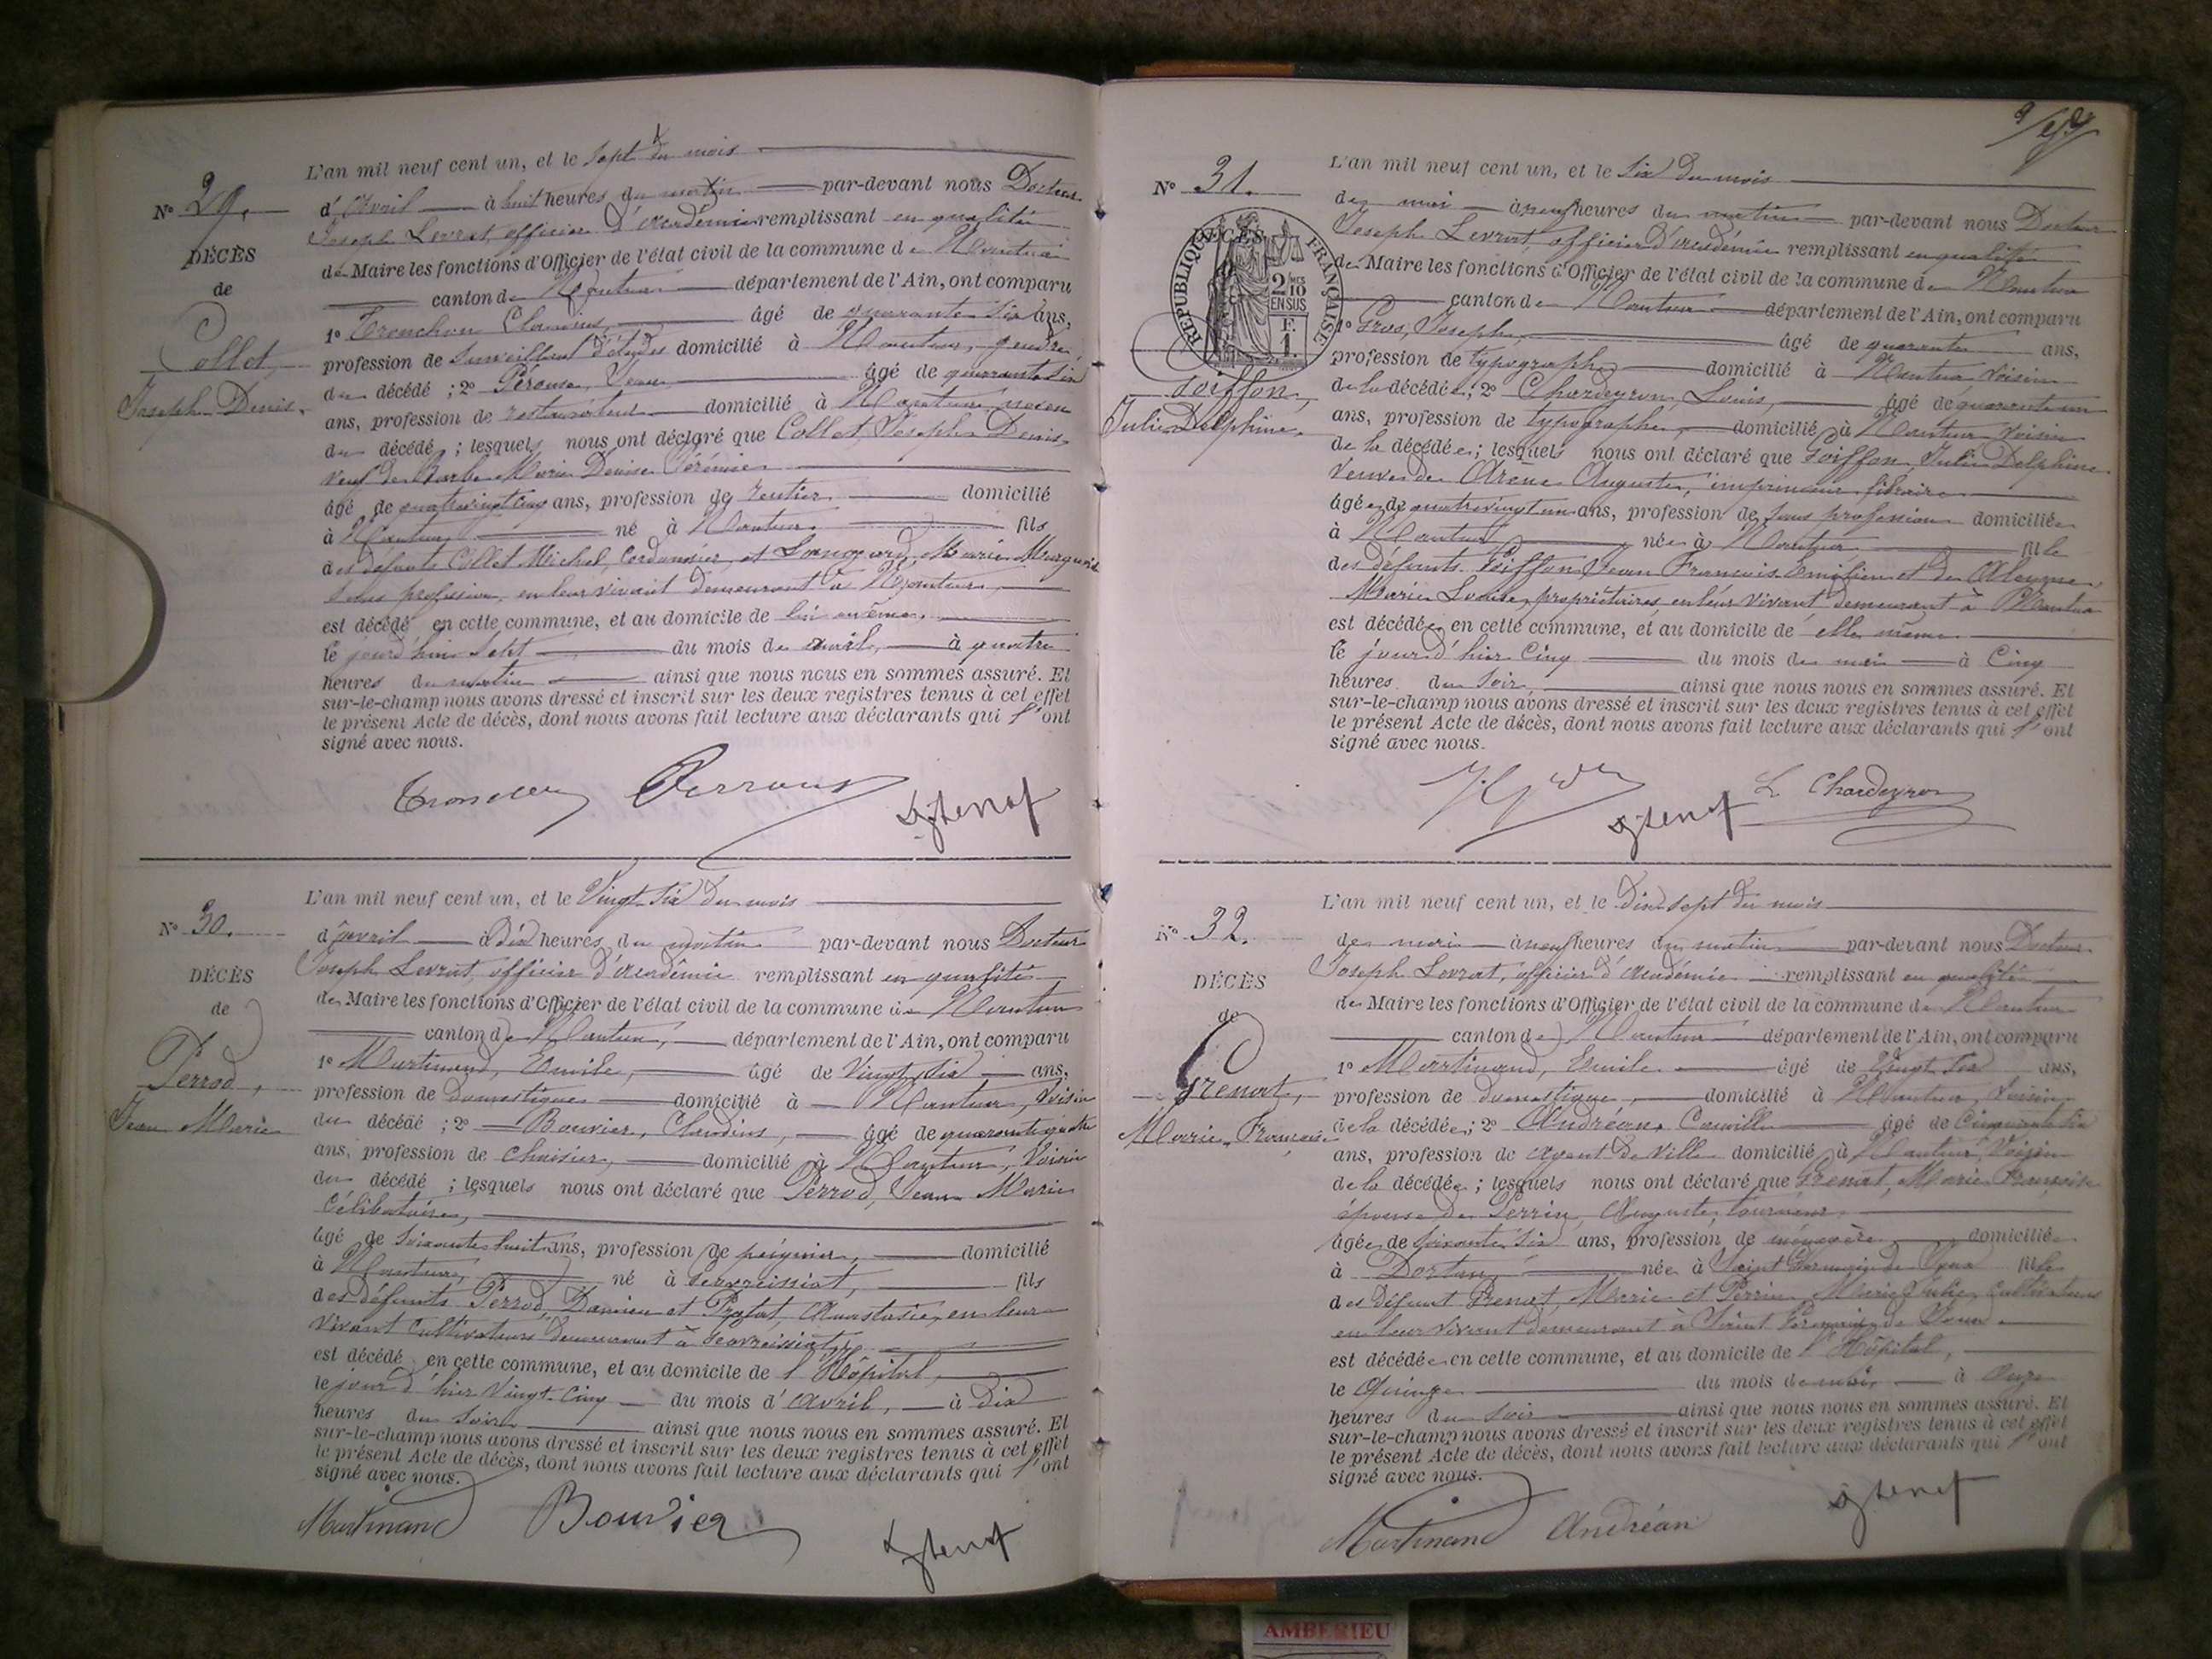 L'an mil neuf cent un, et le Sept du mois
N° 29.
d'Avril à huit heures du matin par-devant nous Docteur
Joseph Levrat, officier d'Académie remplissant en qualité
DÉCÈS
de Maire les fonctions d'Officier de l'état civil de la commune de Nantua
de
canton de Nantua département de l'Ain, ont comparu
1° Tronchon Claudius, âgé de quarante six ans,
Collet,
profession de Surveillant d'études domicilié à Nantua, gendre
Joseph Denis.
du décédé ; 2° Jean âgé de quarante six
ans, profession de restaurateur domicilié à Nantua, neveu
du décédé ; lesquels nous ont déclaré que Collet, Joseph Denis
veuf de Barbe Marie Denise
âgé de quatrevingt cinq ans, profession de rentier domicilié
à Nantua né à Nantua fils
des défunts Collet Michel, Cordonnier, et Marie
Sans profession, en leur vivant demeurant à Nantua
est décédé en cette commune, et au domicile de lui même,
le jourd'hui Sept du mois de avril, à quatre
heures du matin ainsi que nous nous en sommes assuré. Et
sur-le-champ nous avons dressé et inscrit sur les deux registres tenus à cet effet
le présent Acte de décès, dont nous avons fait lecture aux déclarants qui l'ont
signé avec nous.
L'an mil neuf cent un, et le Vingt six du mois
N° 30.
d'avril à dix heures du matin par-devant nous Docteur
Joseph Levrat, officier d'académie remplissant en qualité
DÉCÈS
de Maire les fonctions d'Officier de l'état civil de la commune de Nantua
de
canton de Nantua, département de l'Ain, ont comparu
1° Martinand, Emile, âgé de Vingt six ans,
Perrod,
profession de Domestique domicilié à Nantua, Voisin
Jean Marie
du décédé ; 2° Bouvier, Claudius, âgé de quarante quatre
ans, profession de Chaisier, domicilié à Nantua, Voisin
du décédé ; lesquels nous ont déclaré que Perrod, Jean Marie
Célibataire,
âgé de Soixante huit ans, profession de peignier, domicilié
à Nantua, né à fils
des défunts Perrod, Damien et Anastasie, en leur
vivant Cultivateurs demeurant à
est décédé en cette commune, et au domicile de l'Hôpital,
le jour d'hier Vingt-Cinq du mois d'avril, à Dix
heures du Soir ainsi que nous nous en sommes assuré. Et
sur-le-champ nous avons dressé et inscrit sur les deux registres tenus à cet effet
le présent Acte de décès, dont nous avons fait lecture aux déclarants qui l'ont
signé avec nous.
Martinand Bouvier
L'an mil neuf cent un, et le Six du mois
N° 31.
de mai à neuf heures du matin par-devant nous Docteur
Joseph Levrat, officier d'académie remplissant en qualité
DÉCÈS
RÉPUBLIQUE FRANÇAISE
2/10 EN SUS
F. 1.
de Maire les fonctions d'Officier de l'état civil de la commune de Nantua
canton de Nantua département de l'Ain, ont comparu
1° Gros, Joseph, âgé de quarante ans,
profession de typographe domicilié à Nantua, Voisin
Goiffon,
Julie Delphine.
de la décédée ; 2° Chardeyron, Louis, âgé de quarante un
ans, profession de typographe, domicilié à Nantua Voisin
de la décédée ; lesquels nous ont déclaré que Goiffon, Julie Delphine
Veuve de Arène Auguste, imprimeur libraire
âgée de quatrevingt un ans, profession de Sans profession domiciliée
à Nantua née à Nantua fille
des défunts Goiffon Jean François Emilien et de
Marie Louise, propriétaires, en leur vivant demeurant à Nantua
est décédée en cette commune, et au domicile de elle même
le jour d'hier Cinq du mois de mai à Cinq
heures du Soir, ainsi que nous nous en sommes assuré. Et
sur-le-champ nous avons dressé et inscrit sur les deux registres tenus à cet effet
le présent Acte de décès, dont nous avons fait lecture aux déclarants qui l'ont
signé avec nous.
L. Chardeyron
L'an mil neuf cent un, et le Dix sept du mois
N° 32.
de mai à neuf heures du matin par-devant nous Docteur
Joseph Levrat, officier d'Académie remplissant en qualité
DÉCÈS
de Maire les fonctions d'Officier de l'état civil de la commune de Nantua
de
canton de Nantua département de l'Ain, ont comparu
1° Martinand, Emile âgé de Vingt six ans,
Grenat,
profession de domestique, domicilié à Nantua, Voisin
Marie Françoise
de la décédée ; 2° Andréan, Camille âgé de Cinquante six
ans, profession de agent de Ville domicilié à Nantua, Voisin
de la décédée ; lesquels nous ont déclaré que Grenat, Marie Françoise
épouse de Perrin, Auguste, tourneur,
âgée de Soixante six ans, profession de ménagère domiciliée
à Dortan, née à Saint Germain de Joux fille
des défunt Grenat, Marie et Perrin Marie Julie, Cultivateurs
en leur vivant demeurant à Saint Germain de Joux
est décédée en cette commune, et au domicile de l'Hôpital,
le Quinze du mois de mai, à Onze
heures du Soir ainsi que nous nous en sommes assuré. Et
sur-le-champ nous avons dressé et inscrit sur les deux registres tenus à cet effet
le présent Acte de décès, dont nous avons fait lecture aux déclarants qui l'ont
signé avec nous.
Martinand Andréan
AMBERIEU